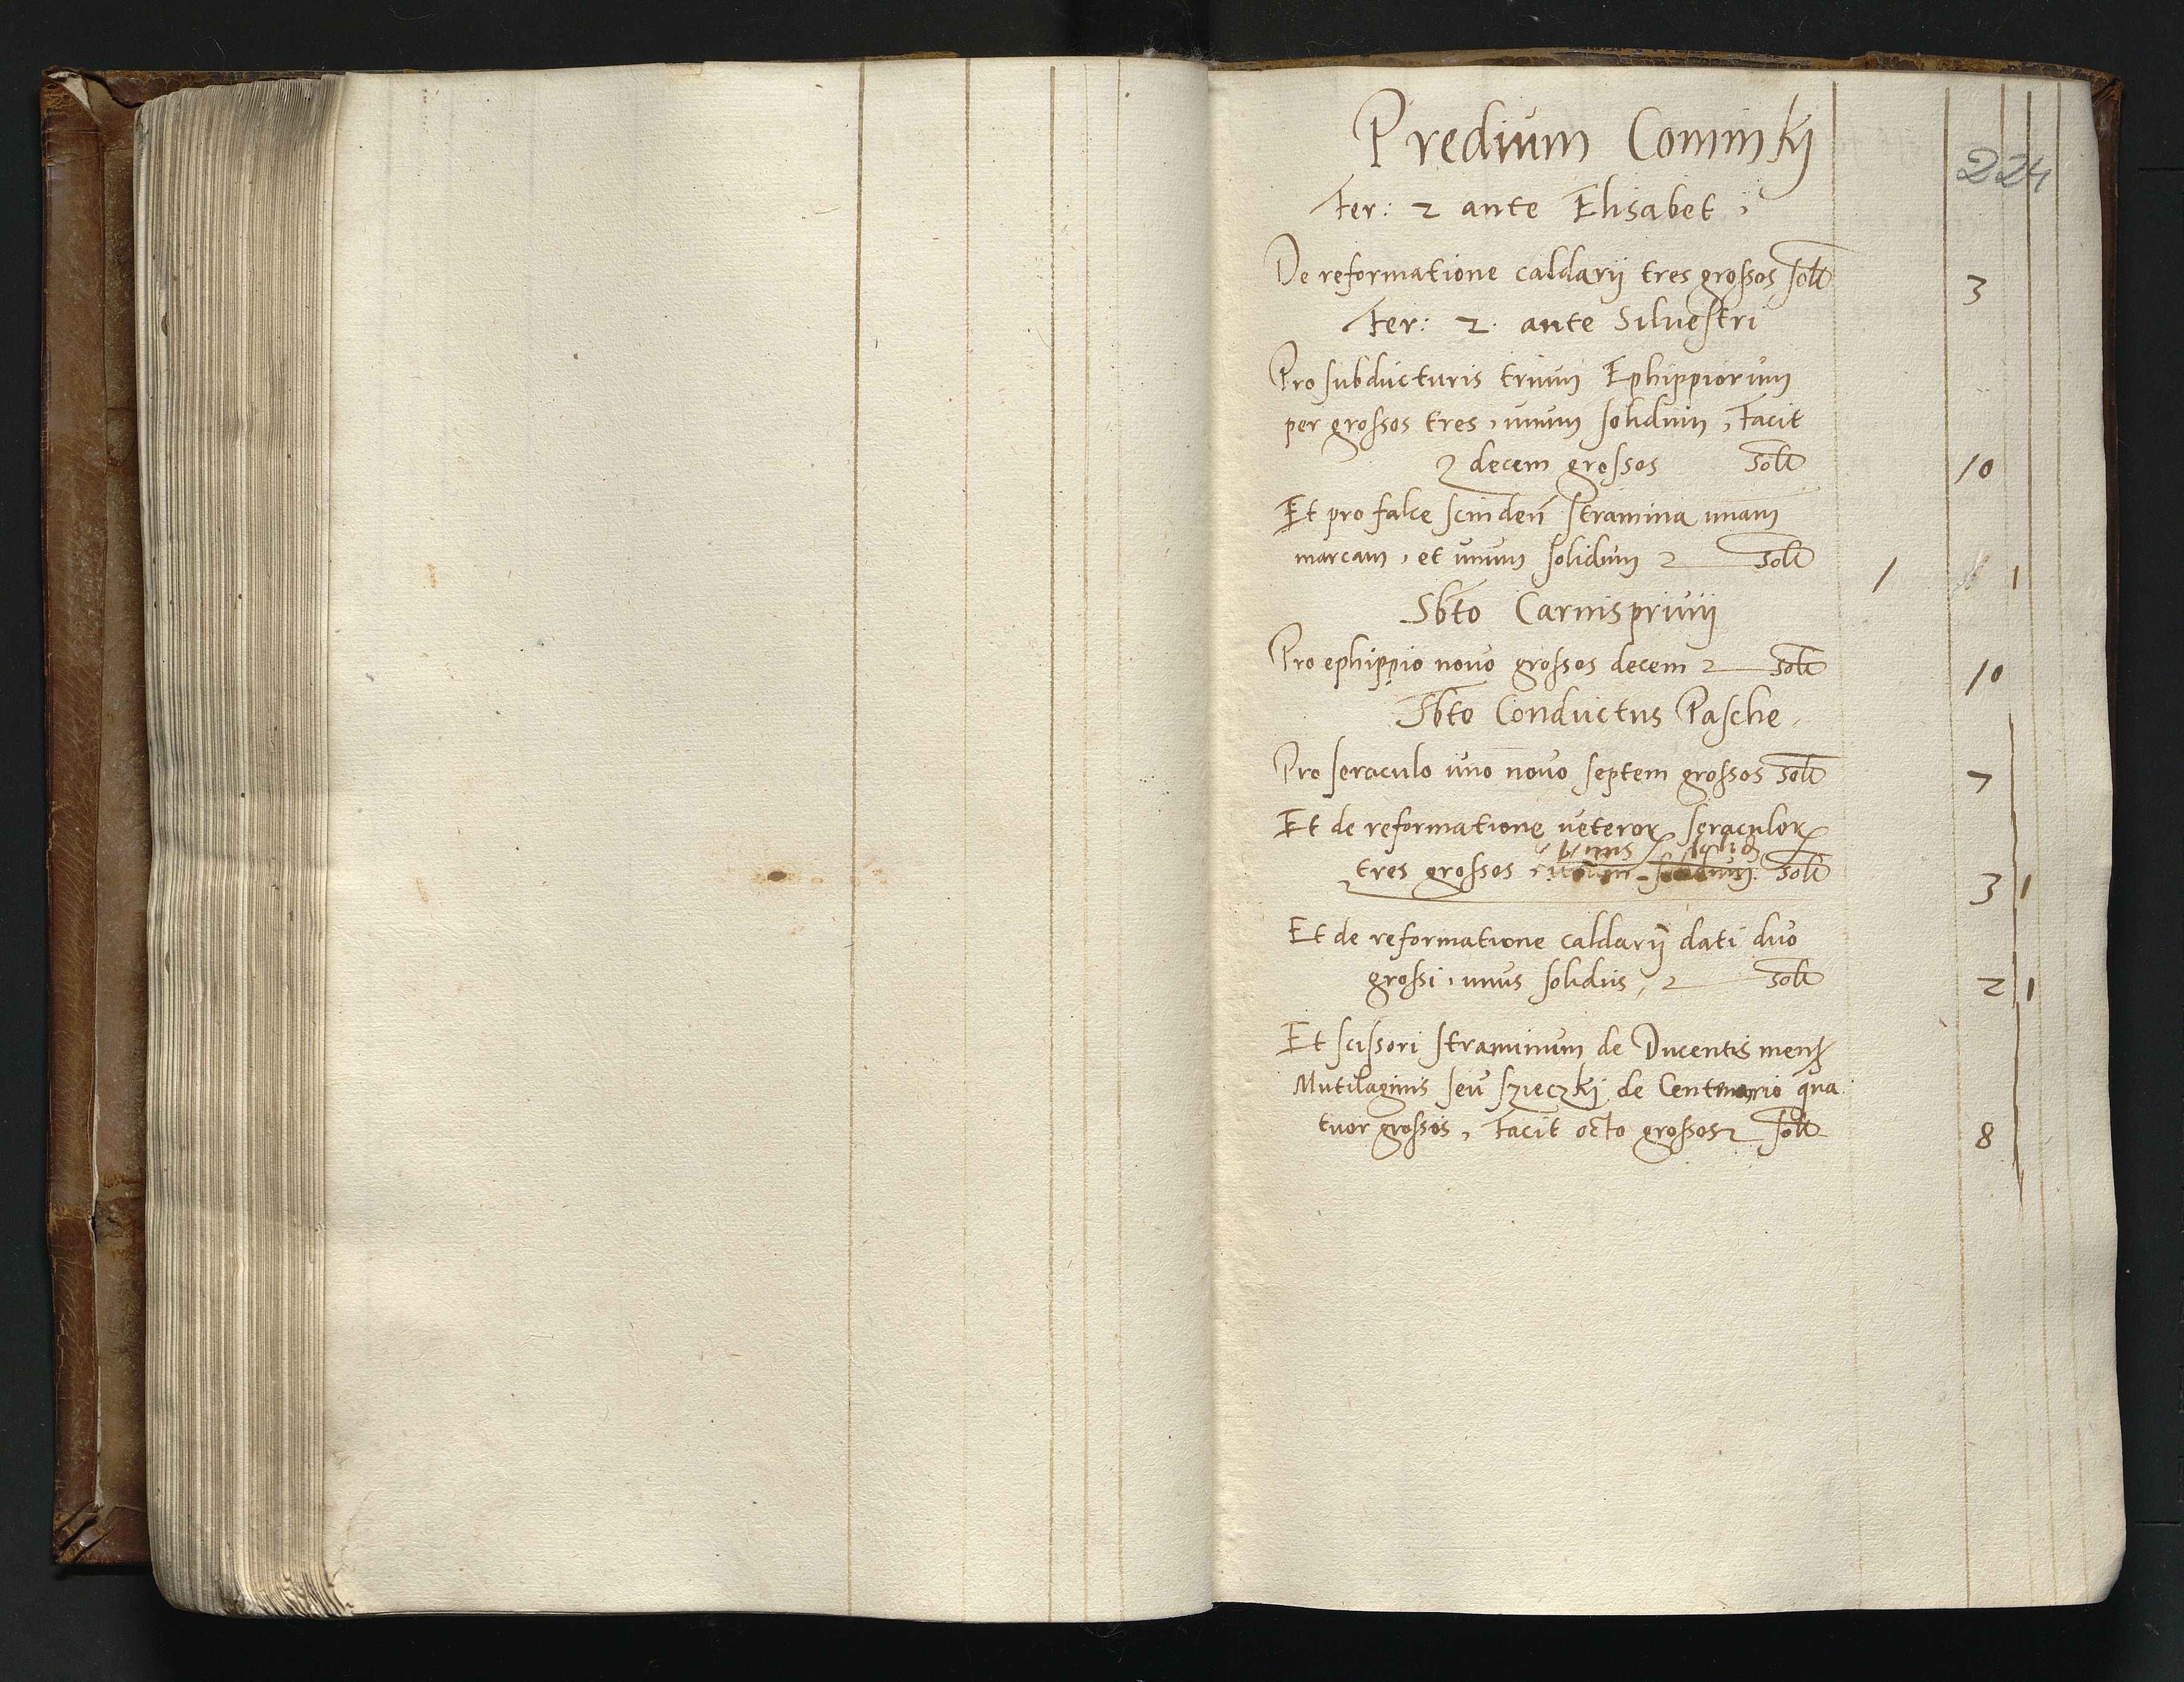 Predium Cominky
224
Fer: 2 ante Elisabet
De reformatione caldarij tres grossos solt 3
Fer: 2. ante Siluestri
Pro subducturis trium Ephippiorum
per grossos tres, unum solidum, Facit
decem grossos solt 10
Et pro falce scinden stramina unam
marcam, et unum solidum solt 1 1
Sbto Carnispriuij
Pro ephippio nouo grossos decem solt 10
Sbto Conductus Pasche
Pro seraculo uno nouo septem grossos solt 7
Et de reformatione veteror seraculor
tres grossos solt 3 1
Et de reformatione caldarij dati duo
grossi, unus solidus, solt 2 1
Et scissori straminum de Ducentis mens
Mutilaginis seu szieczki de Centenario qua
tuor grossos, Facit octo grossos solt 8